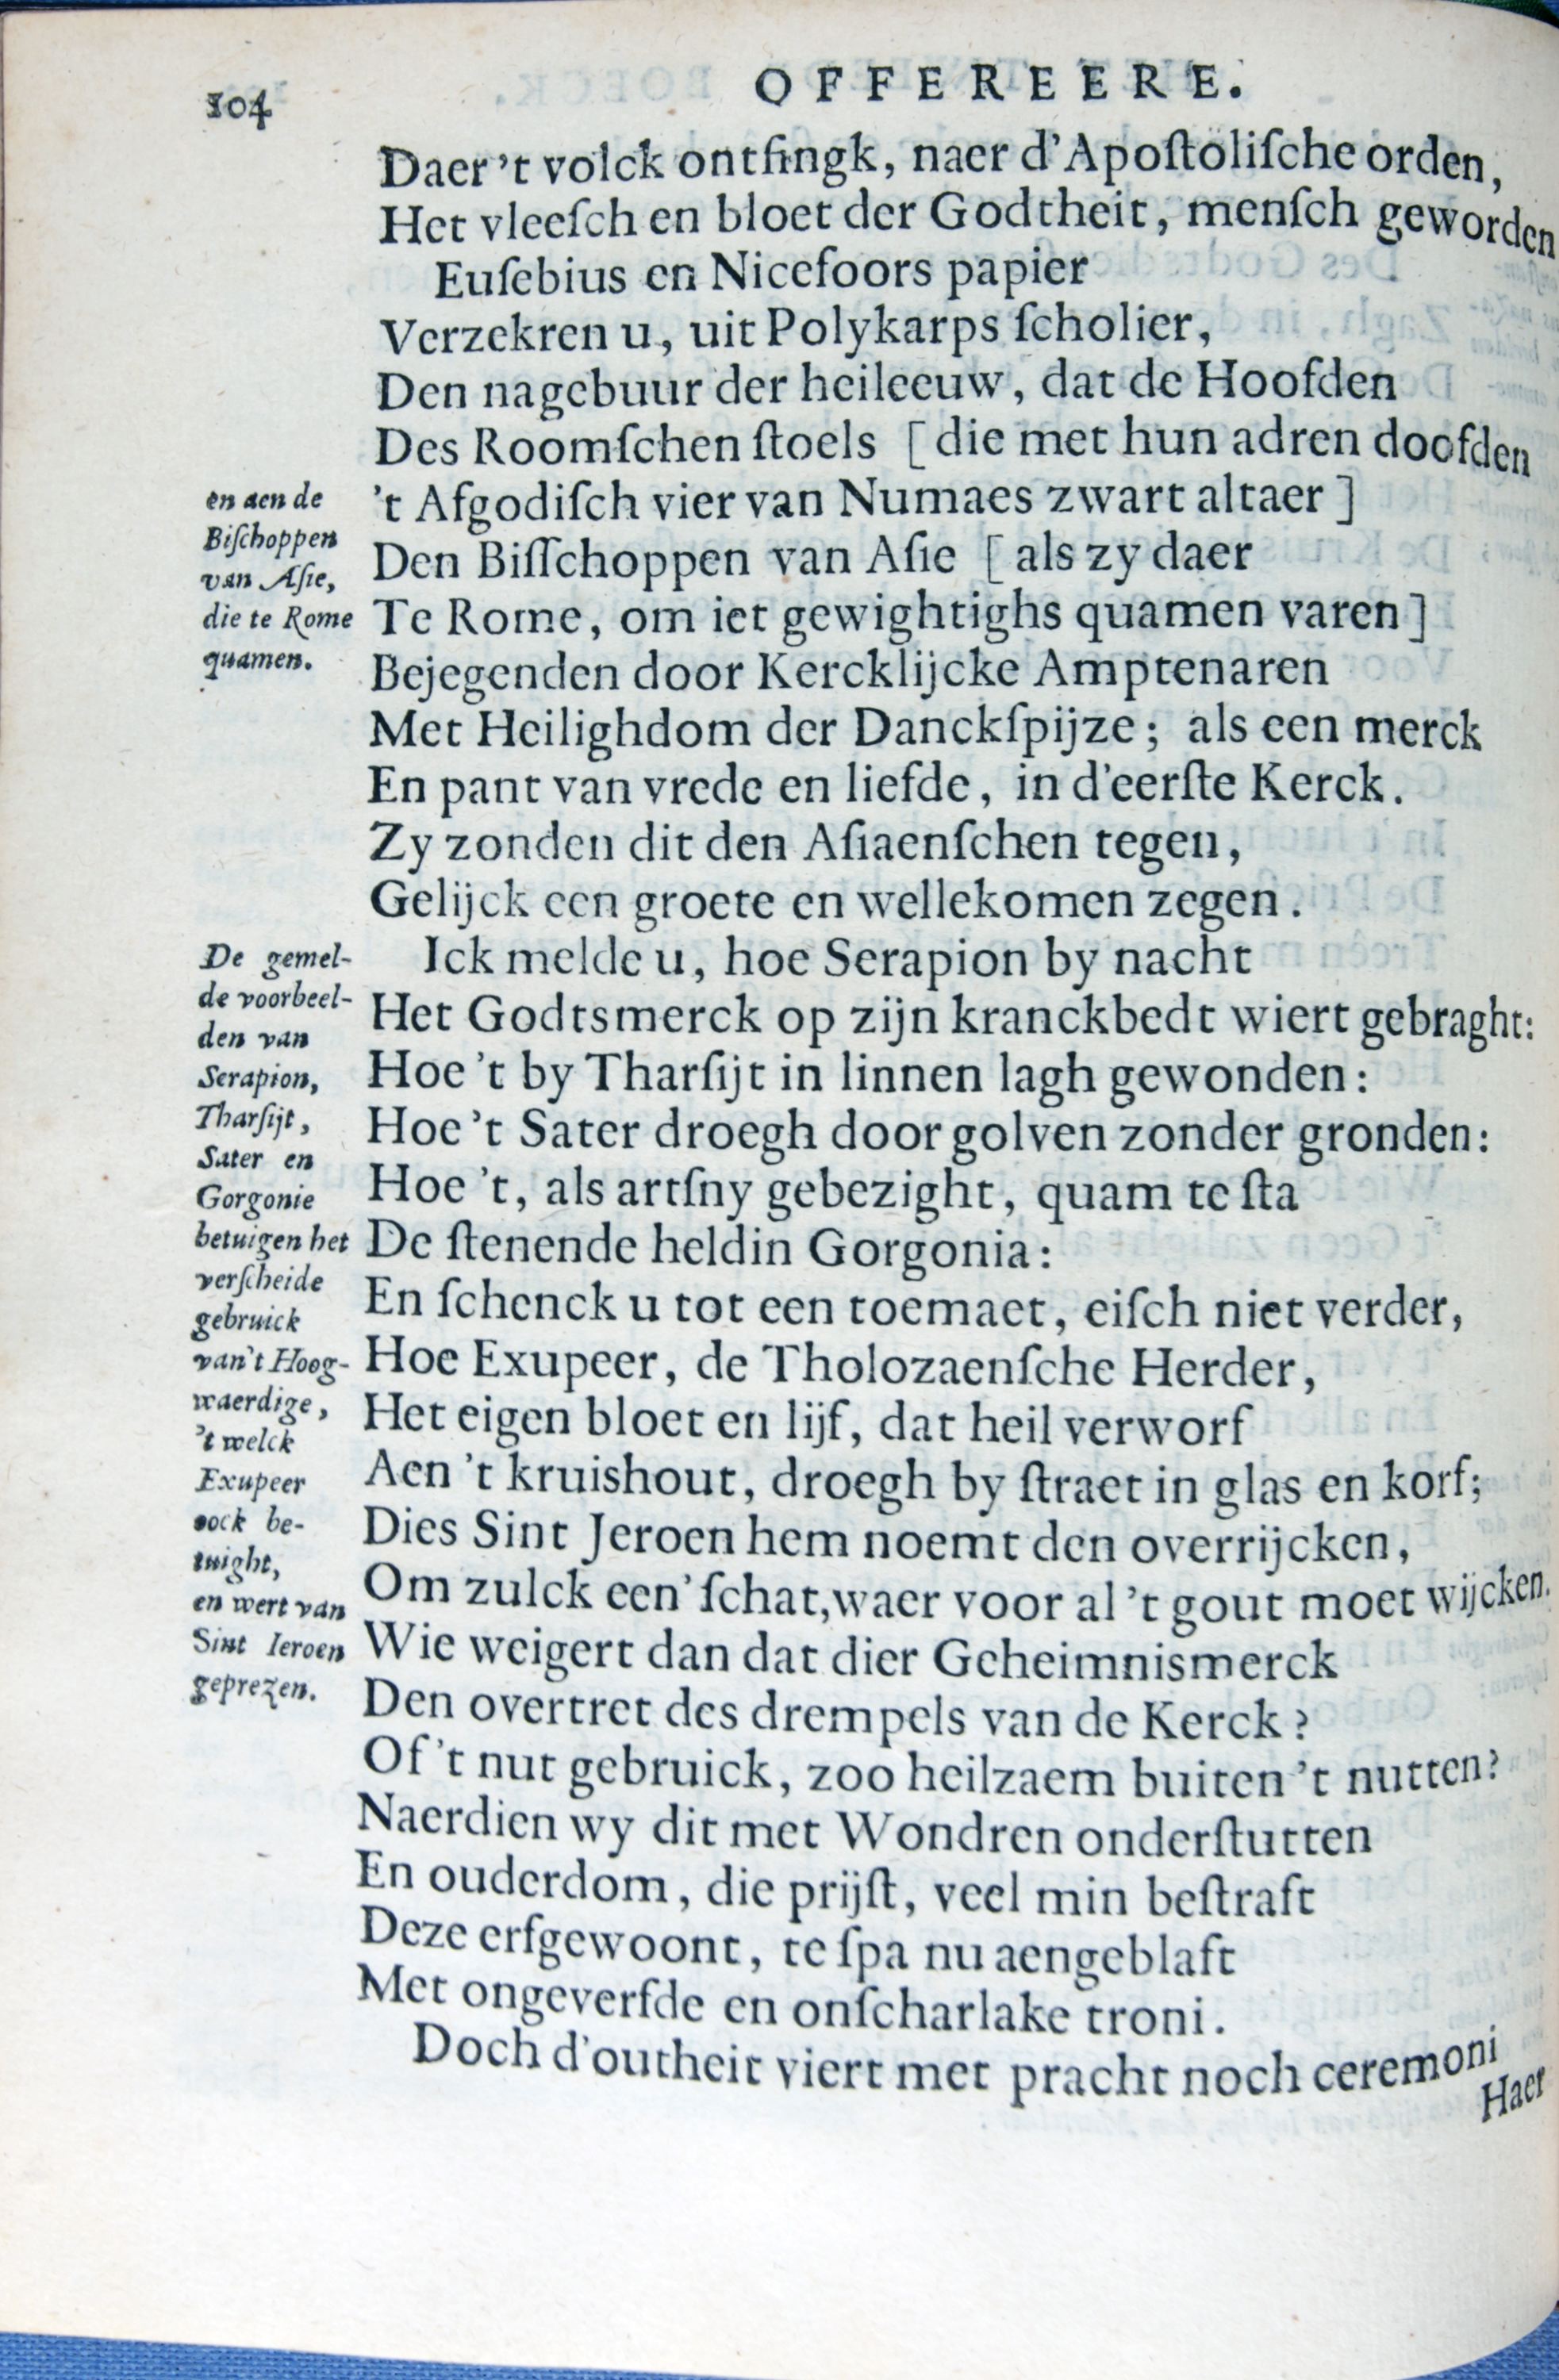 104
OFFEREERE.
Daer 't volck ontfingk, naer d'Apoſtoliſche orden,
Het vleeſch en bloet der Godtheit, menſch geworden
Euſebius en Nicefoors papier
Verzekren u, uit Polykarps ſcholier,
Den nagebuur der heileeuw, dat de Hoofden
Des Roomſchen ſtoels [ die met hun adren doofden
't Afgodiſch vier van Numaes zwart altaer ]
Den Biſſchoppen van Aſie [ als zy daer
Te Rome, om iet gewightighs quamen varen ]
Bejegenden door Kercklijcke Amptenaren
Met Heilighdom der Danckſpijze; als een merck
En pant van vrede en liefde, in d'eerſte Kerck.
Zy zonden dit den Aſiaenſchen tegen,
Gelijck een groete en wellekomen zegen.
Ick melde u, hoe Serapion by nacht
Het Godtsmerck op zijn kranckbedt wiert gebraght:
Hoe 't by Tharſijt in linnen lagh gewonden:
Hoe 't Sater droegh door golven zonder gronden:
Hoe 't, als artſny gebezight, quam te ſta
De ſtenende heldin Gorgonia:
En ſchenck u tot een toemaet, eiſch niet verder,
Hoe Exupeer, de Tholozaenſche Herder,
Het eigen bloet en lijf, dat heil verworf
Aen 't kruishout, droegh by ſtraet in glas en korf;
Dies Sint Jeroen hem noemt den overrijcken,
Om zulck een' ſchat, waer voor al 't gout moet wijcken.
Wie weigert dan dat dier Geheimnismerck
Den overtret des drempels van de Kerck?
Of 't nut gebruick, zoo heilzaem buiten 't nutten?
Naerdien wy dit met Wondren onderſtutten
En ouderdom, die prijſt, veel min beſtraft
Deze erfgewoont, te ſpa nu aengeblaft
Met ongeverfde en onſcharlake troni.
Doch d'outheit viert met pracht noch ceremoni
Haer
en aen de
Biſchoppen
van Aſie,
die te Rome
quamen.
De gemel-
de voorbeel-
den van
Serapion,
Tharſijt,
Sater en
Gorgonie
betuigen het
verſcheide
gebruick
van't Hoog-
waerdige,
't welck
Exupeer
oock be-
tuight,
en wert van
Sint Ieroen
geprezen.